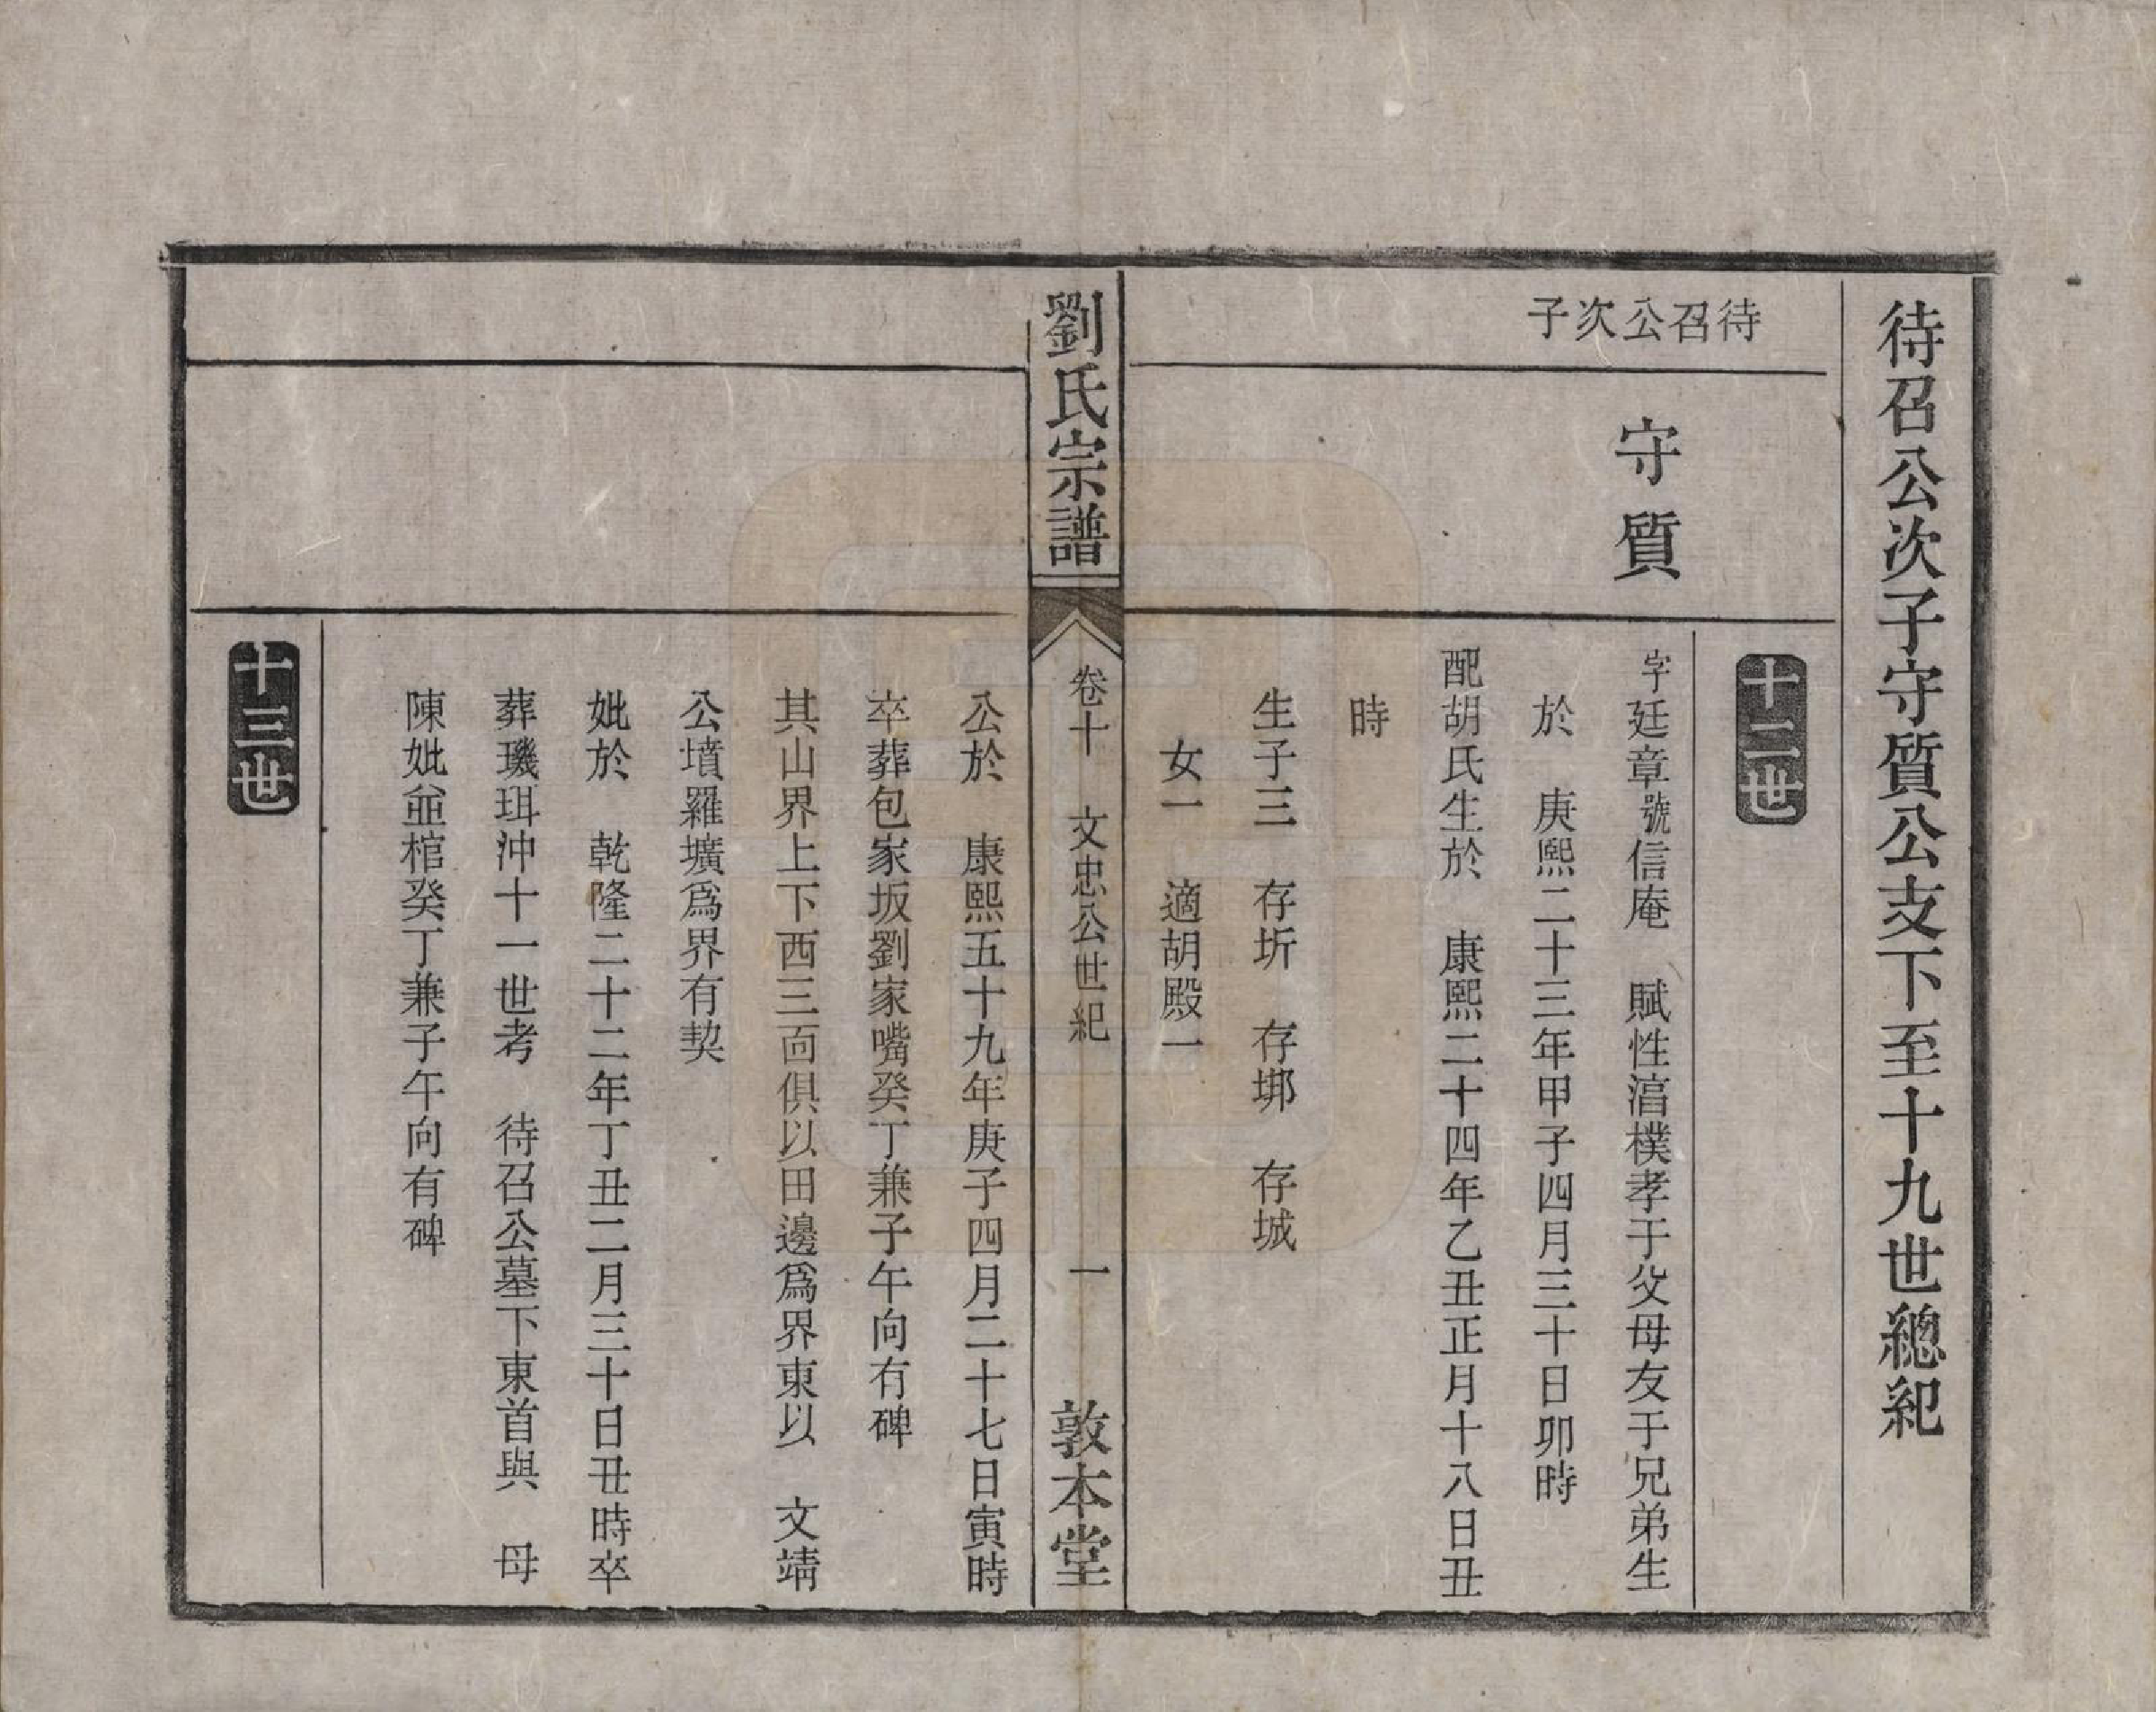 待召公次子守質公支下至十九世總紀
十二世
待召公次子
守質
字廷章號信庵　賦性滀樸孝于父母友于兄弟生
於　庚熙二十三年甲子四月三十日卯時
配胡氏生於　康熙二十四年乙丑正月十八日丑
時
生子三　存圻　存垹　存城
女一　適胡殿一
劉氏宗譜
卷十　文忠公世紀
一
敦本堂
公於　康熙五十九年庚子四月二十七日寅時
卒葬包家坂劉家嘴癸丁兼子午向有碑
其山界上下西三面俱以田邊爲界東以　文靖
公墳羅壙爲界有契
妣於　乾隆二十二年丁丑二月三十日丑時卒
葬璣珥沖十一世考　待召公墓下東首與　母
陳妣並棺癸丁兼子午向有碑
十三世